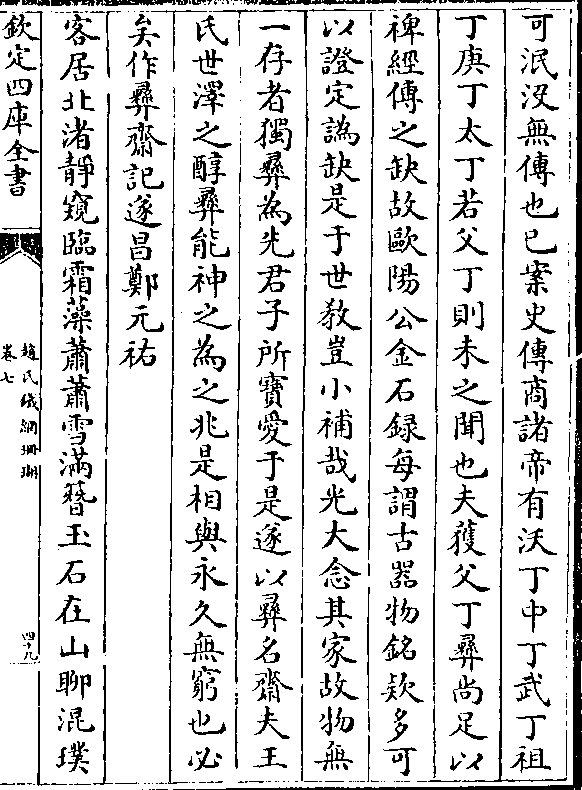 可泯沒無傳也已案史傳商諸帝有沃丁中丁武丁祖
丁庚丁太丁若父丁則未之聞也夫獲父丁彝尚足以
裨經傳之缺故歐陽公金石録每謂古器物銘欵多可
以證定譌缺是于世教豈小補哉光大念其家故物無
一存者獨彝為先君子所寶愛于是遂以彝名齋夫王
氏世澤之醇彝能神之為之兆是相與永久無窮也必
矣作彝齋記遂昌鄭元祐
客居北渚靜窺臨霜藻蕭蕭雪滿簪玉石在山聊混璞
欽定四庫全書
趙氏鐵網珊瑚
卷七
四十九